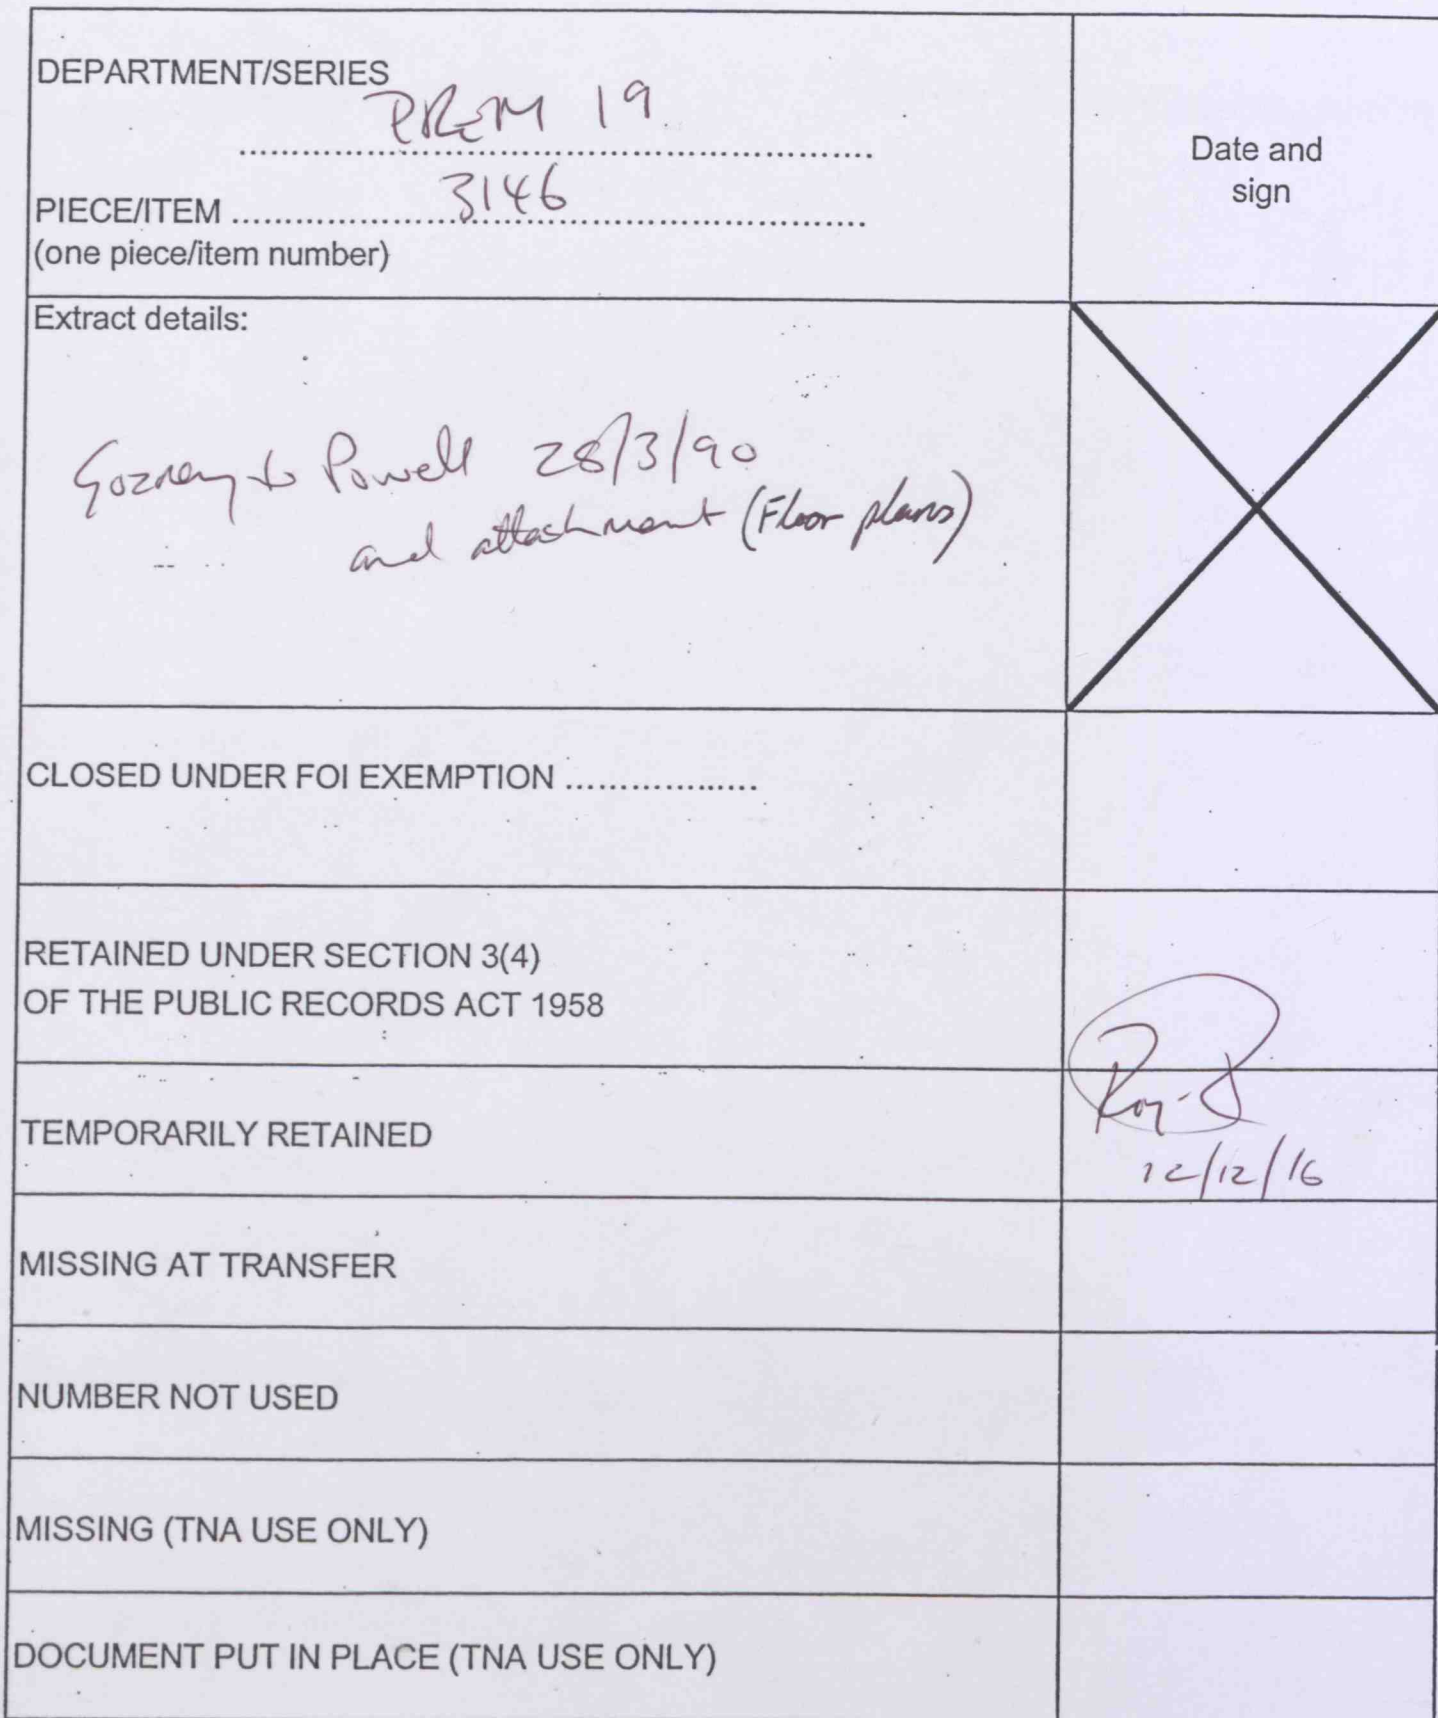 DEPARTMENT/SERIES
PREM 19
Date and
sign
PIECE/ITEM 3146
(one piece/item number)
Extract details:
Gozney to Powell 28/3/90
and attachment (Floor plans)
CLOSED UNDER FOI EXEMPTION ..................
RETAINED UNDER SECTION 3(4)
OF THE PUBLIC RECORDS ACT 1958
TEMPORARILY RETAINED
12/12/16
MISSING AT TRANSFER
NUMBER NOT USED
MISSING (TNA USE ONLY)
DOCUMENT PUT IN PLACE (TNA USE ONLY)